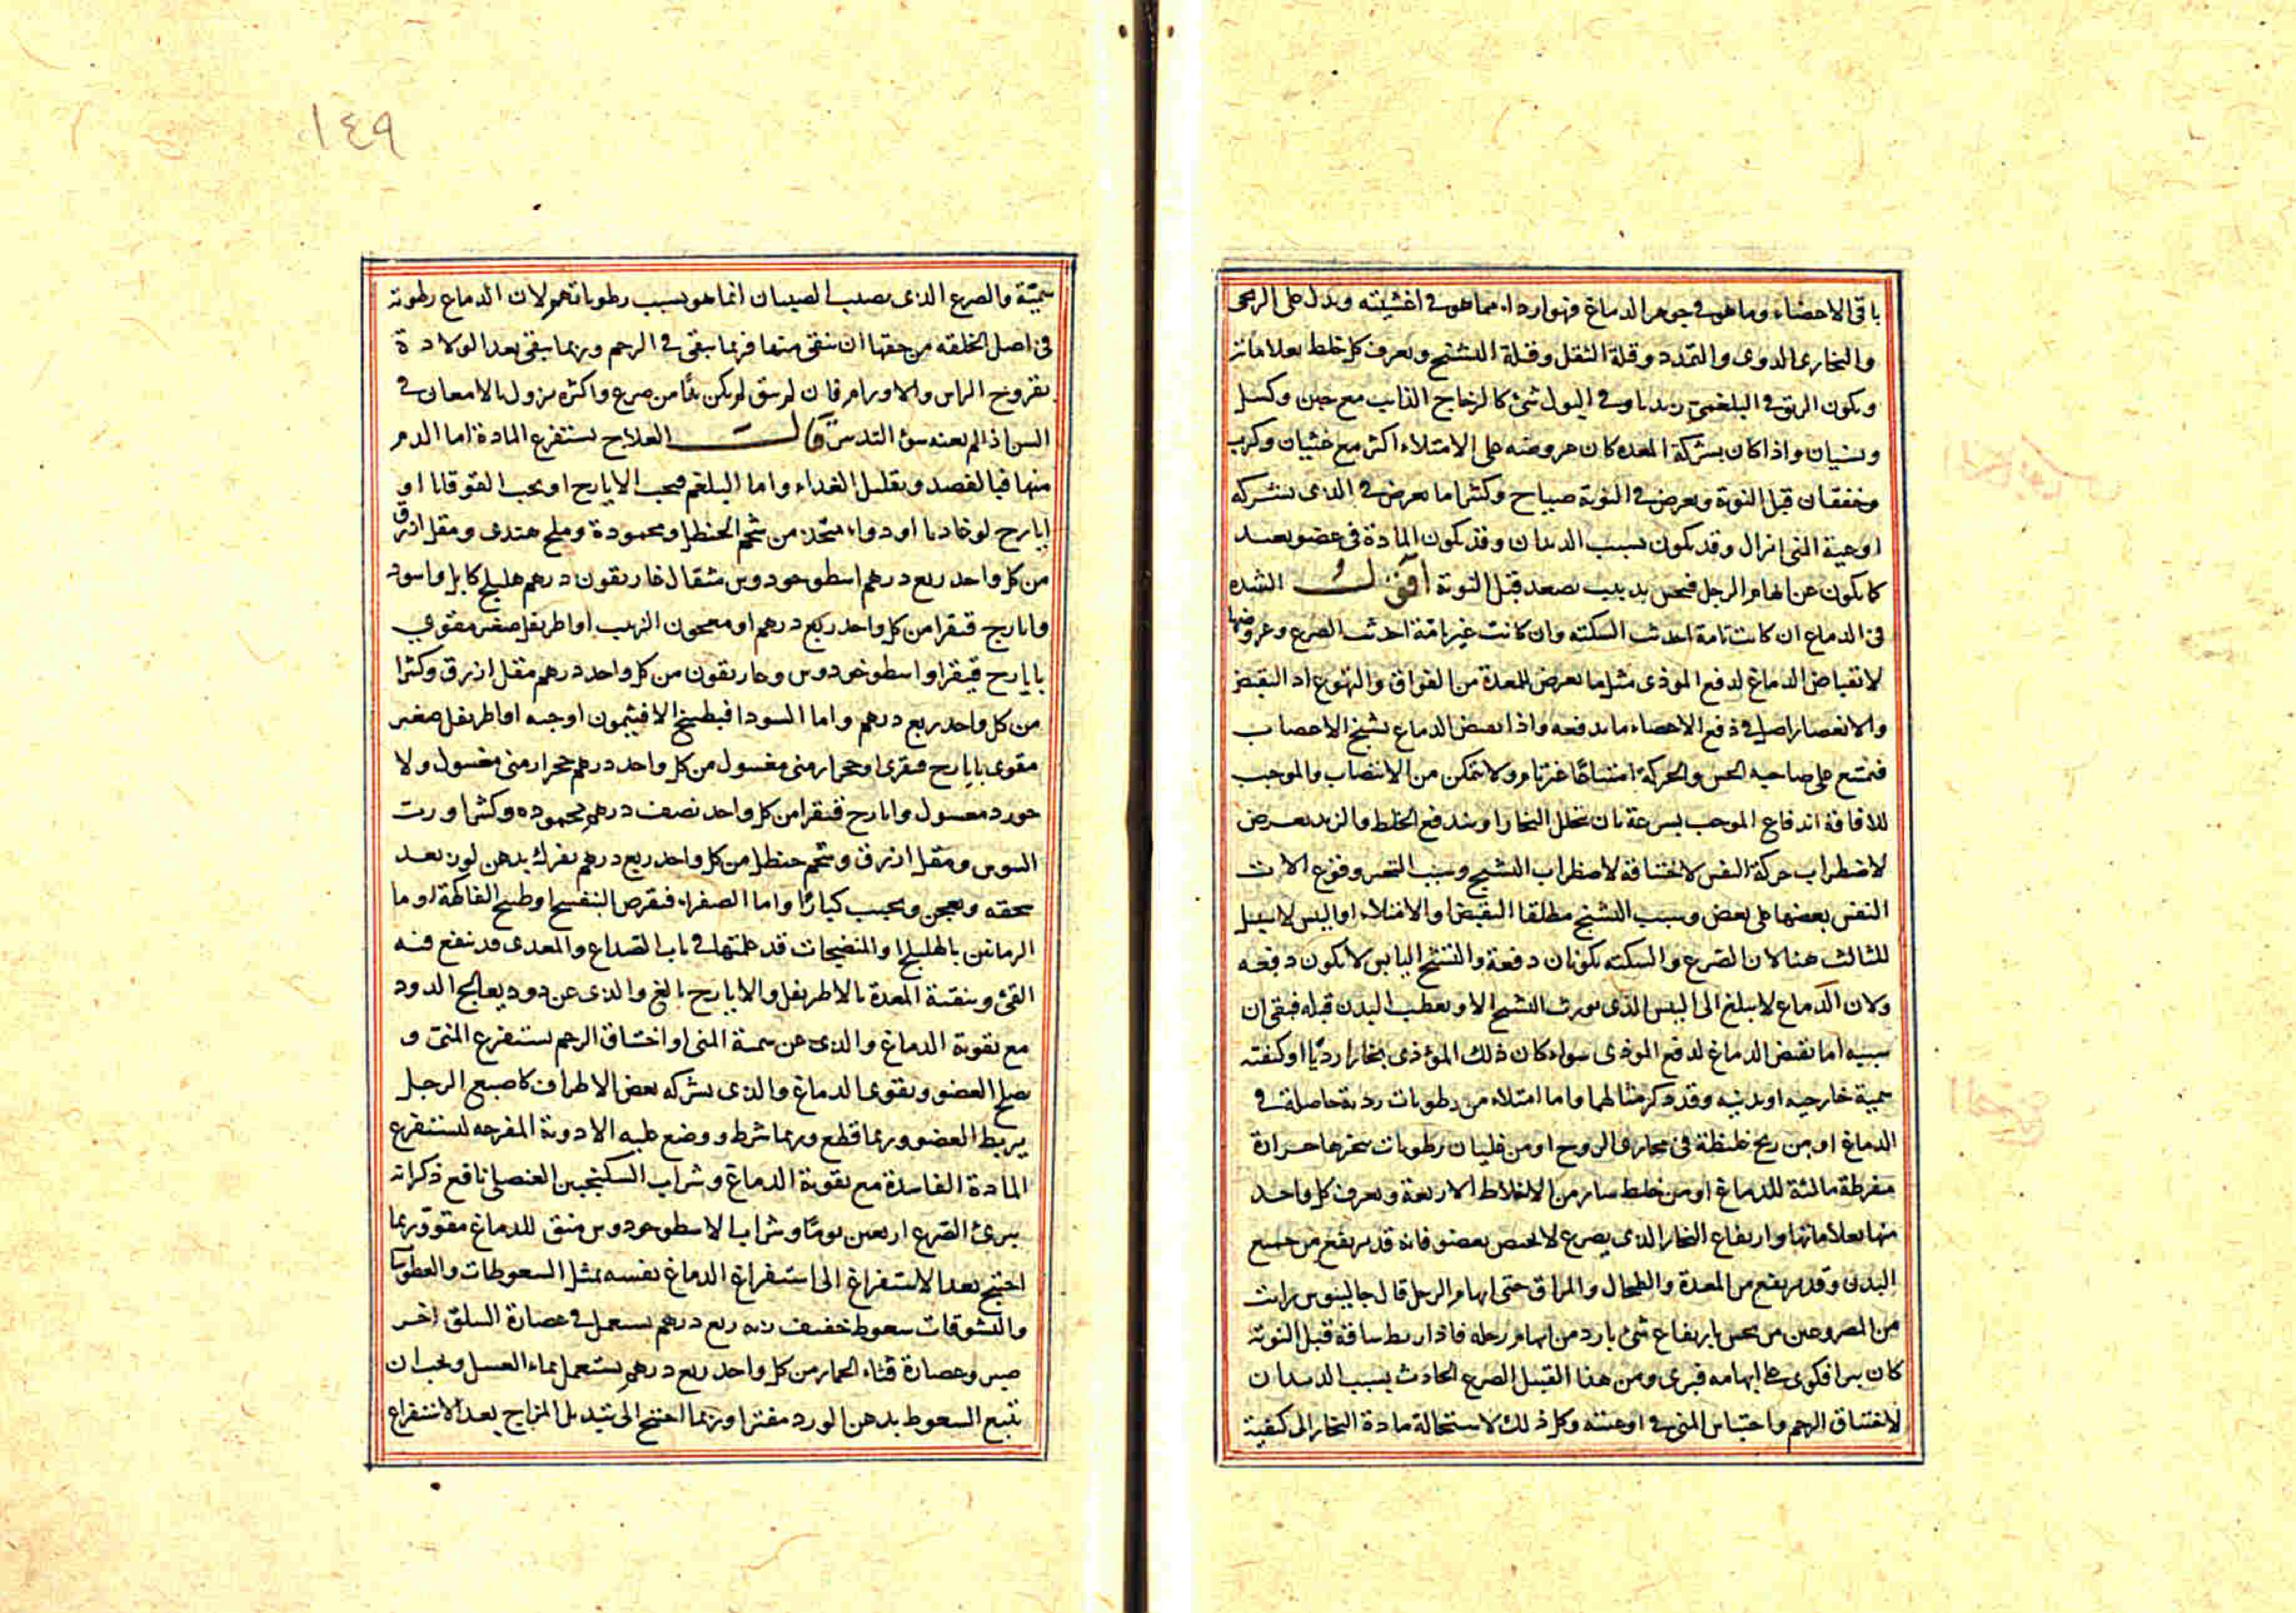 باقي الاعضاء وما هو في جوهر الدماغ فهو اردا مما هو في اغشيته ويدل على الريحي
والبخاري الدوي والتمدد وقلة الثقل وقلة التشنج ويعرف كل خلط بعلاماته
ويكون الريق في البلغمي زبديا وفي البول شئ كالزجاج الذايب مع جبن وكسل
ونسيان واذا كان بشركة المعده كان عروضه على الامتلاء اكثر مع غثيان وكرب
وخفقان قبل النوبة ويعرض في النوبة صياح وكثيرا ما يعرض في الذي بشركه
اوعية المنى انزال وقد يكون بسبب الديدان وقد يكون المادة في عضو بعيد
كما يكون عن ابهام الرجل فيحس بدبيب يصعد قبل النوبة اقول السده
في الدماغ ان كانت تامة احدث السكته وان كانت غير تامة احدث الصرع وعروضها
لانقباض الدماغ لدفع الموذي مثل ما يعرض للمعدة من الفواق والتهوع اذ التقبض
والانعصار اصل في دفع الاعضاء ما يدفعه واذا تقبض الدماغ تشنج الاعصاب
فتمتنع على صاحبه الحس والحركة امتناعا غير تام ولا يتمكن من الانتصاب والموجب
للافاقة اندفاع الموجب بسرعة بان يتحلل البخار او يندفع الخلط والزبد يعرض
لاضطراب حركة النفس لاختناقه لاضطراب التشنج وسبب وقوع الات
النفس بعضها على بعض وسبب التشنج مطلقا التقبض او الامتلاء او اليبس لا سبيل
للثالث هنا لان الصرع والسكته يكونان دفعة والتشنج اليابس لا يكون دفعه
ولان الدماغ لا يبلغ الى اليبس الذي يورث التشنج الا ويعطب البدن قبله فبقى ان
سببه اما تقبض الدماغ لدفع الموذي سواء كان ذلك الموذي بخارا رديا او كيفيته
سمية خارجيه او بدنيه وقد ذكر مثالهما واما امتلاء من رطوبات ردية حاصلة في
الدماغ او من ريح غليظة في مجاري الروح او من غليان رطوبات حرارة
مفرطة مالئة للدماغ او من خلط ساير من الاخلاط الاربعة ويعرف كل واحد
منها بعلاماتها وارتفاع البخار الذي يصرع لا يختص بعضو فانه قد يرتفع من جميع
البدن وقد يرتفع من المعدة والطحال والمراق حتى ابهام الرجل قال جالينوس رايت
من المصروعين من يحس بارتفاع شئ بارد من ابهام رجله فاذا ربط ساقه قبل النوبة
كان يبرا فكوى على ابهامه فبرى ومن هذا القبيل الصرع الحادث بسبب الديدان
لاختناق الرحم واحتباس المنى في اوعيته وكل ذلك لاستحالة مادة البخار الى كيفية
١٤٩
سمية والصرع الذي يصيب الصبيان انما هو بسبب رطوباتهم لان الدماغ رطوبته
في اصل الخلقه من حقها ان تنقى منها فربما تبقى في الرحم وربما تبقى بعد الولادة
بقروح الراس والاورام فان لم تنق لم يكن بد من صرع واكثره يزول بالامعان في
السن اذا لم يعنه سوء التدبير قال العلاج يستفرغ المادة اما الدم
منها فبالفصد وتقليل الغداء واما البلغم فبحب الايارج او بحب القوقايا او
ايارج لوغاديا او دواء متخذ من شحم الحنظل ومحمودة وملح هندي ومقل ازرق
من كل واحد ربع درهم اسطوخودوس مثقال غاريقون درهم هليلج كابلي واسود
وايارج فيقرا من كل واحد ربع درهم او معجون الزبيب او اطريفل صغير مقوي
بايارج فيقرا واسطوخودوس وغاريقون من كل واحد درهم مقل ازرق وكثيرا
من كل واحد ربع درهم واما السودا فبطبيخ الافيثمون او حبه او اطريفل صغير
مقوى بايارج فيقرى او حجر ارمني مغسول من كل واحد درهم حجر ارمني مغسول ولا
جورد مغسول وايارج فيقرا من كل واحد نصف درهم محموده وكثيرا ورب
السوس ومقل ازرق وشحم حنظل من كل واحد ربع درهم يفرك بدهن لوز بعد
سحقه ويعجن ويحبب كبارا واما الصفراء فبقرص البنفسج او طبيخ الفاكهة او ما
الرمانين بالهليلج والمنضجات قد علمتها في باب الصداع والمعدي قد ينفع فيه
القئ وتنقية المعدة بالاطريفل والايارج بالغ والذي عن دود يعالج الدود
مع تقوية الدماغ والذي عن سمية المني او اختناق الرحم يستفرغ المني و
يصلح العضو ويقوى الدماغ والذي بشركه بعض الاطراف كاصبع الرجل
يربط العضو وربما قطع وربما شرط ووضع عليه الادوية المقرحه ليستفرغ
المادة الفاسدة مع تقوية الدماغ وشراب السكنجبين العنصلي نافع ذكر انه
يبرئ الصرع اربعين يوما وشراب الاسطوخودوس منق للدماغ مقو وربما
احتيج بعد الاستفراغ الى استفراغ الدماغ نفسه بمثل السعوطات والعطوسات
والنشوقات سعوط خفيف ربع درهم يستعمل في عصارة السلق اخر
صبر وعصارة قثاء الحمار من كل واحد ربع درهم يستعمل بماء العسل ويجب ان
تتبع السعوط بدهن الورد مفترا وربما احتيج الى تبديل المزاج بعد الاستفراغ